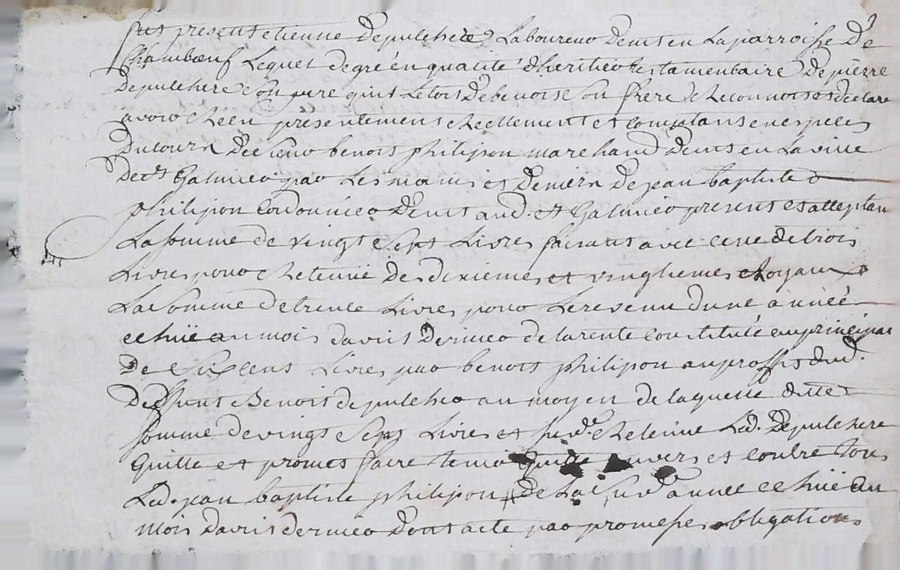 fut present etienne depulhere Laboureur demt en La parroisse De
Chambœuf Lequel degré en qualité d'heritier testamentaire De pierre
Depulhere Son pere qui Letois de benois Son frere Reconnois et declare
avoir Recu presentement Reellement et Comptans en especes
Du cours De Sieur benois philipon marchand demt en La ville
De St Galmier par Les mains et deniers De jean baptiste
philipon Cordonnier demt aud. St Galmier present et acceptan
La Somme de vingt Sept Livres faisant avec celle de trois
Livres pour Retenüe De dixieme et vingtiemes Royaux
La Somme de trente Livres pour Le revenu d'une année
echüe au mois d'avril Dernier de la rente Constituée au principal
De Six Cens Livres par benois philipon au proffit dud.
Deffunt Benois depulhere au moyen de laquelle ditte
Somme de vingt Sept Livres et Retenüe Led. Depulhere
Quitte et promet faire tenir Quitte envers et Contre Tous
Led. jean baptiste philipon De La annee echüe au
mois d'avril dernier Dont acte par promesse obligation